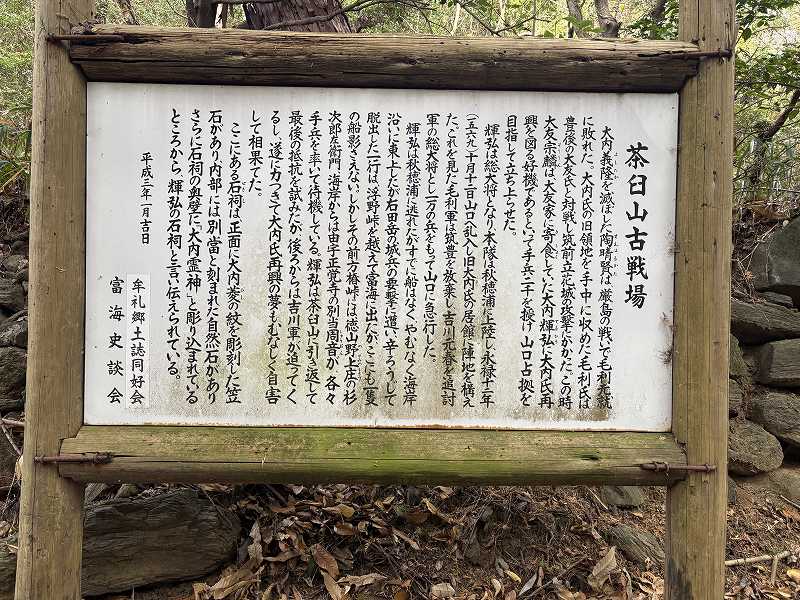 茶臼山古戦場
大内義隆を滅ぼした陶晴賢は、厳島の戦いで毛利元就
に敗れた。大内氏の旧領地を手中に収めた毛利氏は
豊後の大友氏と対戦し筑前立花城攻撃にかかった。この時
大友宗麟は、大友家に寄食していた大内輝弘に大内氏再
興を図る好機であるといって手兵二千を授け山口占拠を
目指して立ち上らせた。
輝弘は総大将となり本隊は秋穂浦に上陸し永禄十二年
(一五六九)十月十二日山口へ乱入し旧大内氏の居館に陣地を構え
た。これを見た毛利軍は筑豊を放棄し吉川元春を追討
軍の総大将とし一万の兵をもって山口に急行した。
輝弘は秋穂浦に逃れたがすでに船はなくやむなく海岸
沿いに東上したが石田岳の城兵の要撃に遭い辛ろうじて
脱出した一行は、浮野峠を越えて富海に出たが、ここにも一隻
の船影さえない。しかしその前方椿峠には徳山野上庄の杉
次郎左衛門、海岸からは由宇正覚寺の別当周音が、各々
手兵を率いて待機している。輝弘は茶臼山に引き返して
最後の抵抗を試みたが後ろからは吉川軍が迫ってく
るし、遂に力つきて大内氏再興の夢もむなしく自害
して相果てた。
ここにある石祠は正面に大内菱の紋を彫刻した笠
石があり内部には別當と刻まれた自然石があり
さらに石祠の奥壁に「大内霊神」と彫り込まれている
ところから、輝弘の石祠と言い伝えられている。
平成三年一月吉日
牟礼郷土誌同好会
富海史談会